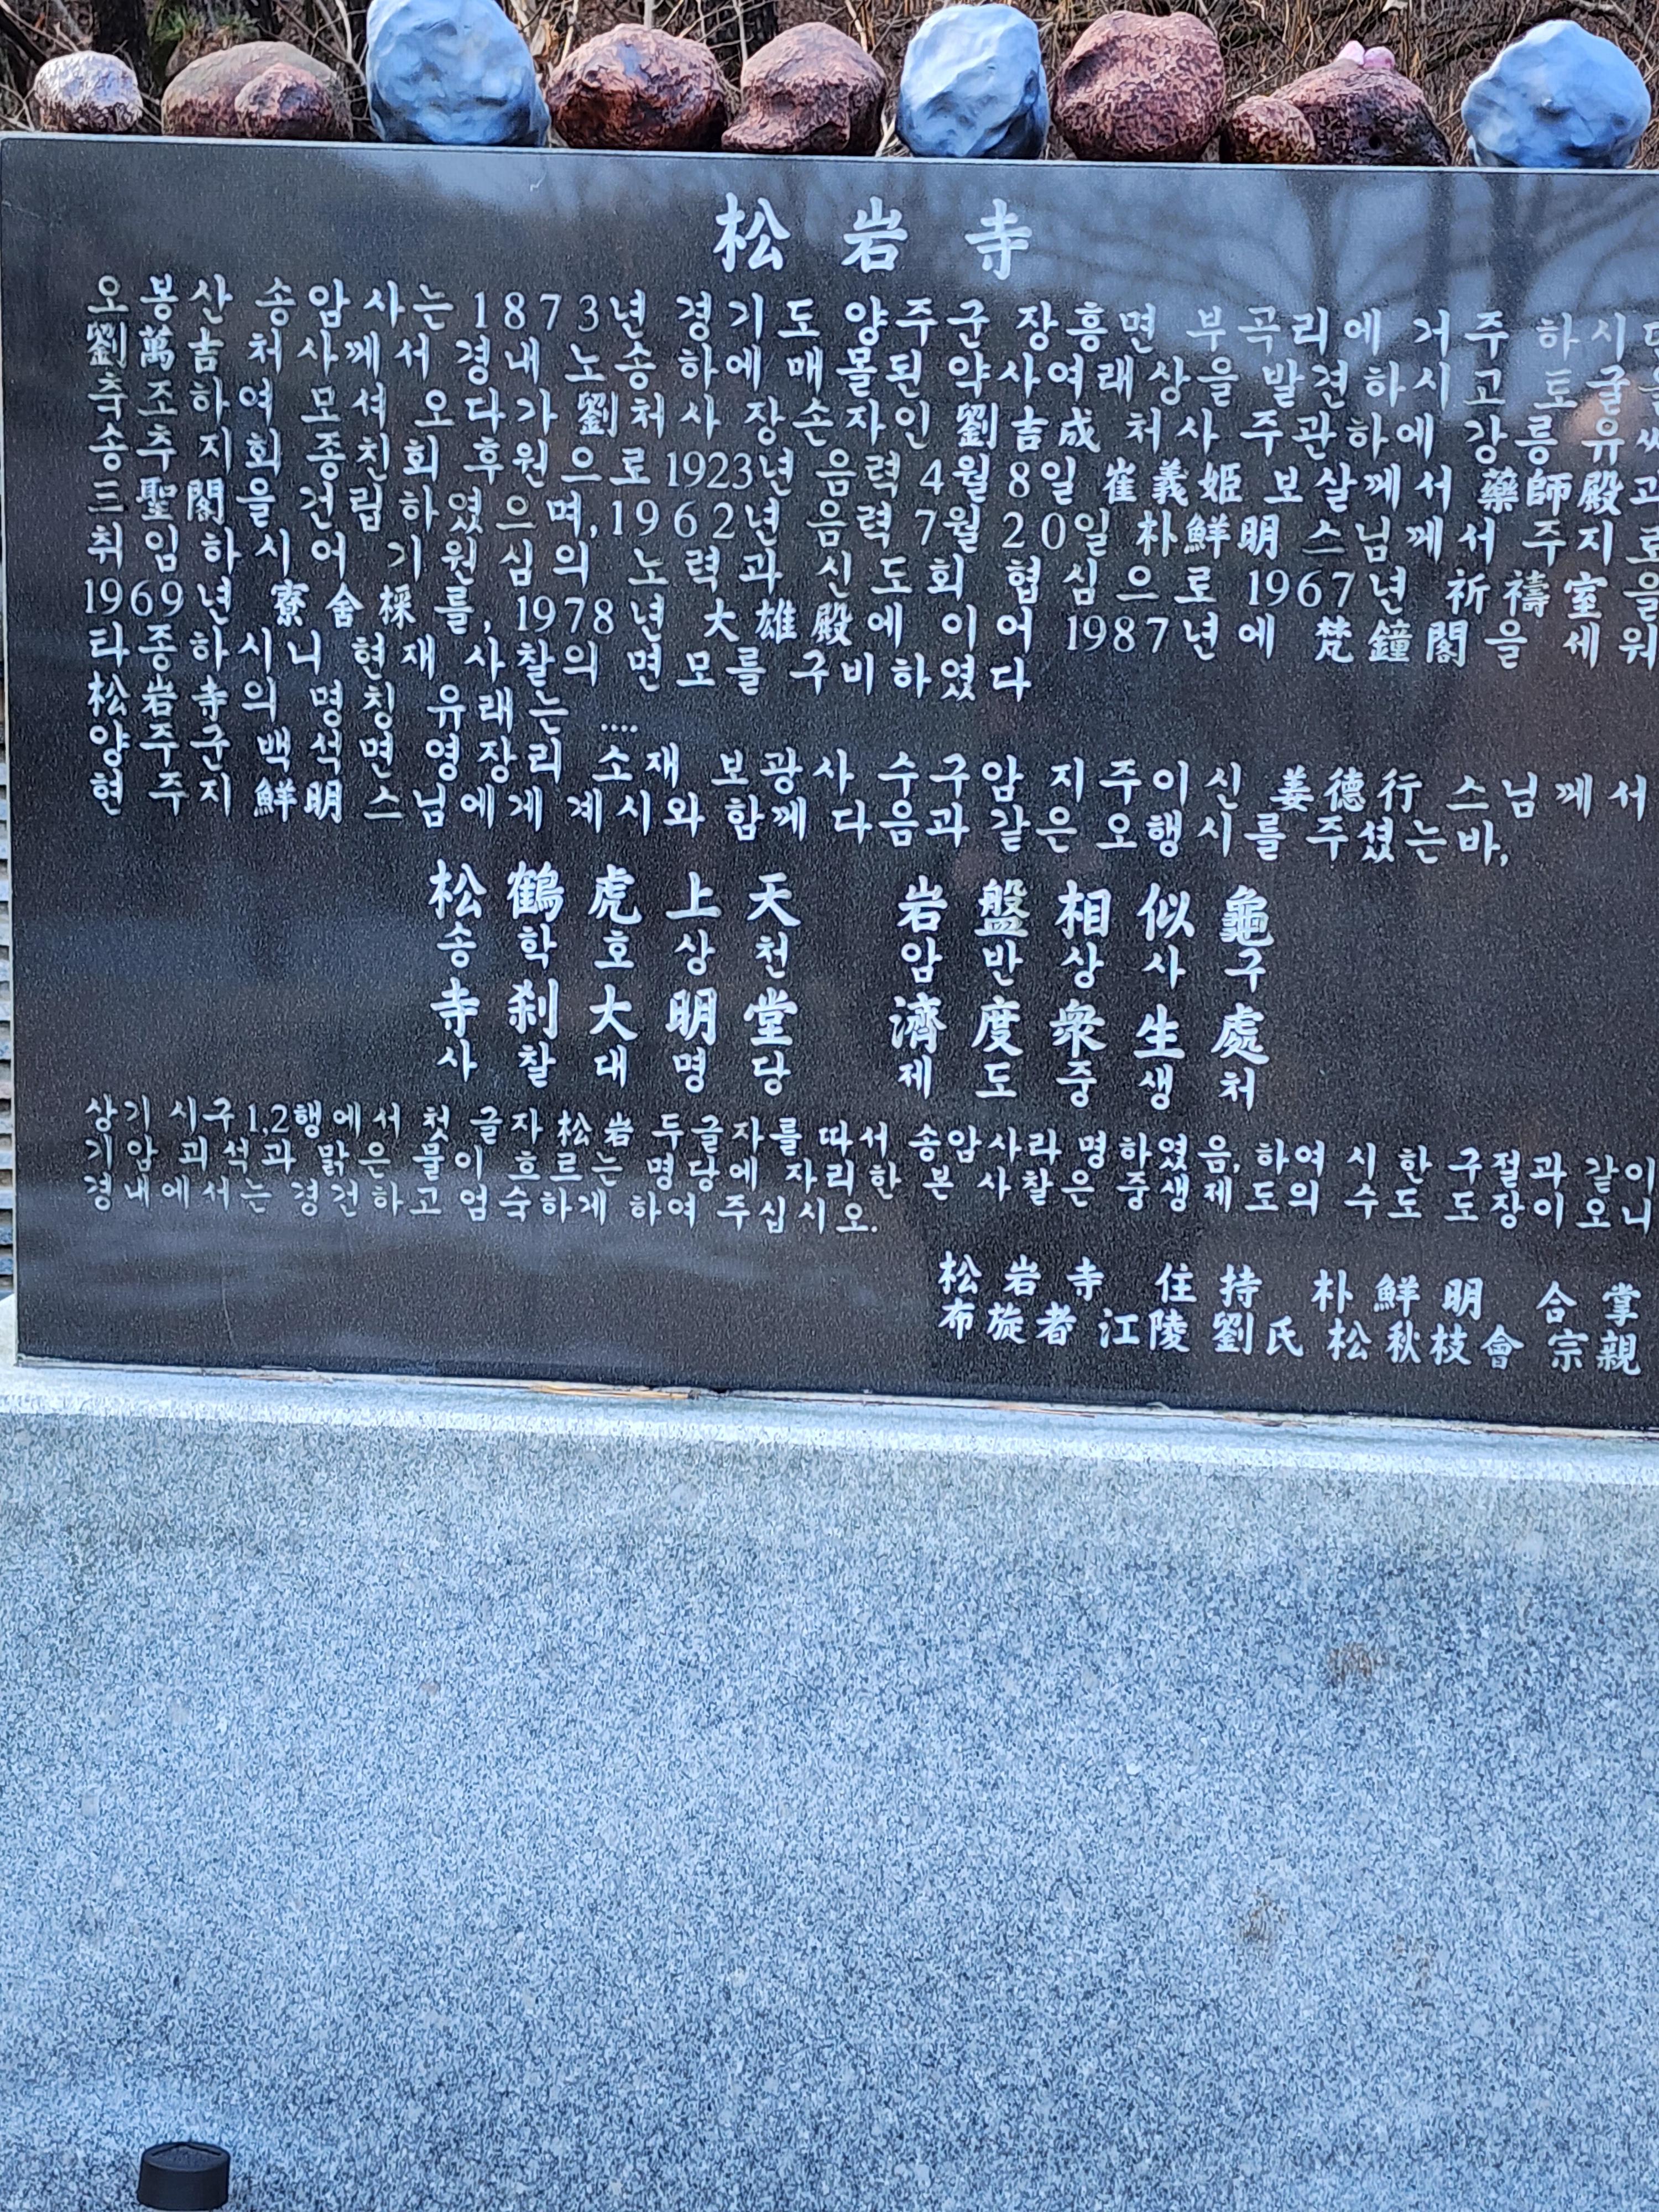 松岩寺
오봉산 송암사는 1873년 경기도 양주군 장흥면 부곡리에 거주 하시던
劉萬吉 처사께서 경내 노송 하에 매몰된 약사여래상을 발견하시고 토굴을
축조하여 모셔 오다가 劉처사 장손자인 劉吉成 처사 주관하에 강릉유씨
송추 지회 종친회 후원으로 1923년 음력 4월 8일 崔義姬 보살께서 藥師殿과
三聖閣을 건립하였으며, 1962년 음력 7월 20일 朴鮮明 스님께서 주지로
취임하시어 기원심의 노력과 신도회 협심으로 1967년 祈禱室을
1969년 寮舍採를, 1978년 大雄殿에 이어 1987년에 梵鐘閣을 세워
타종하시니 현재 사찰의 면모를 구비하였다
松岩寺의 명칭 유래는 ....
양주군 백석면 영장리 소재 보광사 수구암 지주이신 姜德行 스님께서
현 주지 鮮明스님에게 계시와 함께 다음과 같은 오행시를 주셨는바,
松鶴虎上天 岩盤相似龜
송학호상천 암반상사구
寺刹大明堂 濟度衆生處
사찰대명당 제도중생처
상기 시구 1,2행에서 첫 글자 松岩 두글자를 따서 송암사라 명하였음, 하여 시 한 구절과 같이
기암 괴석과 맑은 물이 흐르는 명당에 자리한 본 사찰은 중생제도의 수도 도장이오니
경내에서는 경건하고 엄숙하게 하여 주십시오.
松岩寺 住持 朴鮮明 合掌
布旋者 江陵劉氏 松秋枝會 宗親